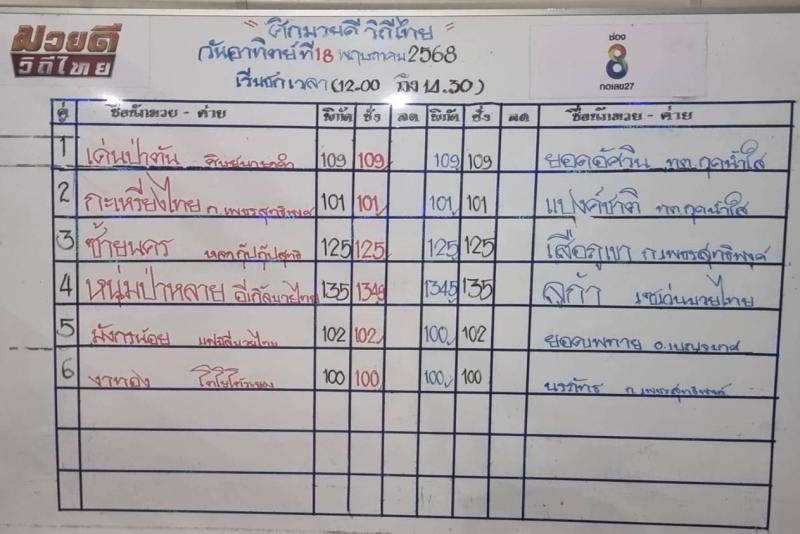 มวยดี
วิถีไทย
"ศึกมวยดี วิถีไทย"
วันอาทิตย์ที่ 18 พฤษภาคม 2568
เริ่มชกเวลา (12.00 ถึง 14.30)
ช่อง
8
กดเลข27
คู่ ชื่อนักมวย - ค่าย พิกัด ชั่ง ลด พิกัด ชั่ง ลด ชื่อนักมวย - ค่าย
1 เด่นป่าตัน 109 109 109 109 ยอดอัศวิน ทต.กุดน้ำใส
2 กะเหรี่ยงไทย ก.เพชรสุทธิพงศ์ 101 101 101 101 แบงค์ชาติ ทต.กุดน้ำใส
3 ซ้ายนคร 125 125 125 125 เสือภูเขา ก.เพชรสุทธิพงศ์
4 หนุ่มป่าหลาย อีเกิ้ลมวยไทย 135 1349 1345 135 ลูก้า เซเว่นมวยไทย
5 มังกรน้อย แฟมิลี่มวยไทย 102 102 100 102 อ.เบญจมาศ
6 งาทอง 100 100 100 100 นรภัทร ก.เพชรสุทธิพงศ์